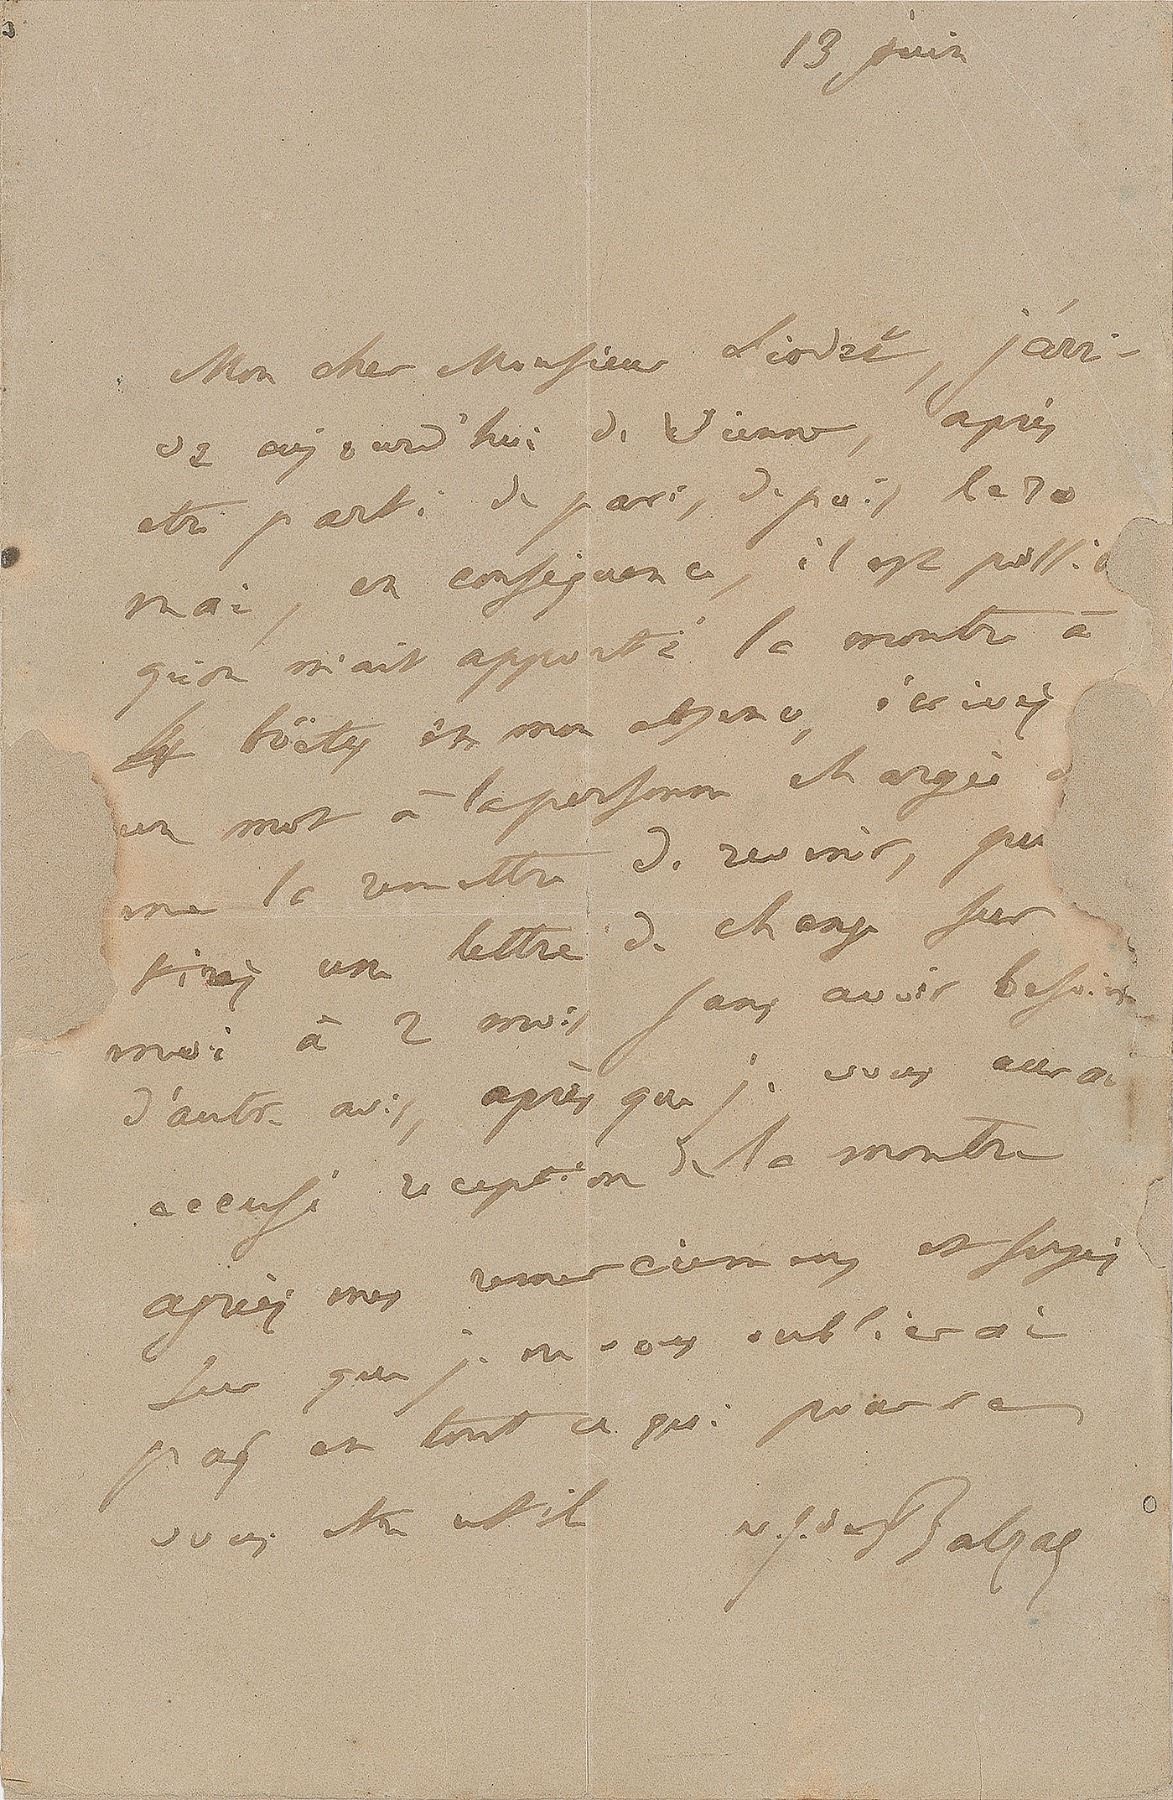 13 juin
Mon cher Monsieur Liodet, j'arri-
ve aujourd'hui de Vienne, après
etre parti de paris, depuis le 20
mai, en conséquence, il est possi
qu'on m'ait apporté la montre à
boëtes en mon absence, écrivez
un mot à la personne chargée
me la remettre de revenir, pu
tirez une lettre de change sur
moi à 2 mois sans avoir besoin
d'autre avis, après que je vous aurai
accusé reception de la montre
agréez mes remerciemens et soyez
sur que je ne vous oublierai
pas en tout ce qui pourra
vous etre utile de Balzac